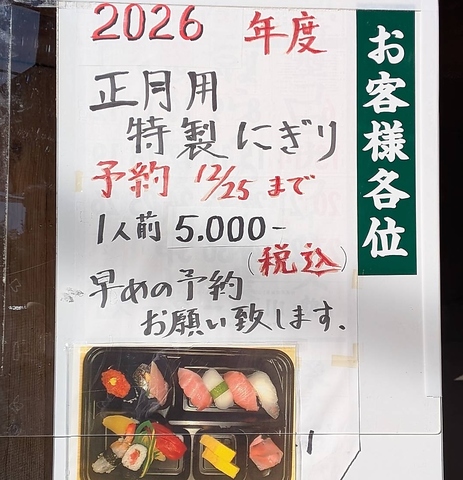 お客様各位
2026 年度
正月用
特製にぎり
予約 12/25 まで
1人前 5.000-
(税込)
早めの予約
お願い致します.